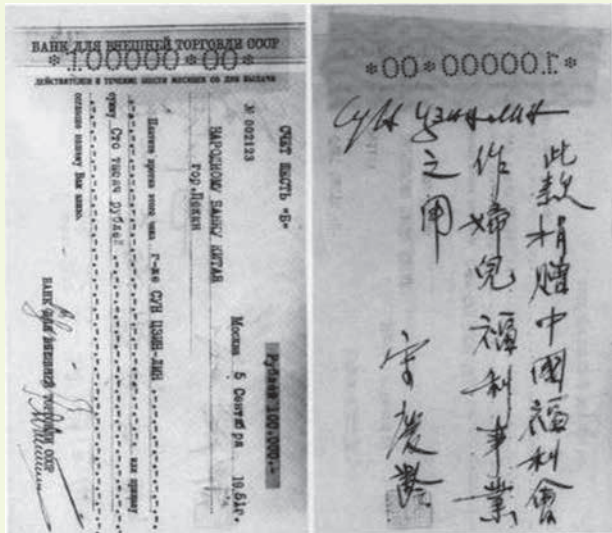 БАНК ДЛЯ ВНЕШНЕЙ ТОРГОВЛИ СССР
ДЕЙСТВИТЕЛЕН В ТЕЧЕНИЕ ШЕСТИ МЕСЯЦЕВ СО ДНЯ ВЫДАЧИ
СЧЕТ ШЕСТЬ "Б"
Рублей 100.000.-
№ 002123
Москва 5 Сентября 1951г.
НАРОДНОМУ БАНКУ КИТАЯ
гор.Пекин
Платите против этого чека г-же СУН ЦЗИН-ЛИН или приказу
сумму Сто тысяч рублей
согласно нашему Вам авизо.
БАНК ДЛЯ ВНЕШНЕЙ ТОРГОВЛИ СССР
Сун Цзин-лин
此款捐贈中國福利會
作婦兒福利事業
之用
宋慶齡